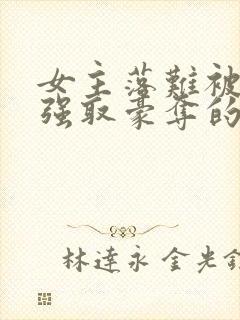 女主落難被
強取豪奪的
林達永 金光